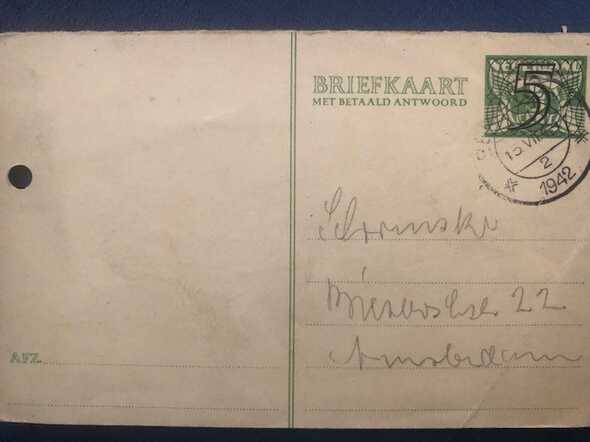 NEDERLAND
5
BRIEFKAART
MET BETAALD ANTWOORD
15 VII
2
1942
22
Amsterdam
AFZ.